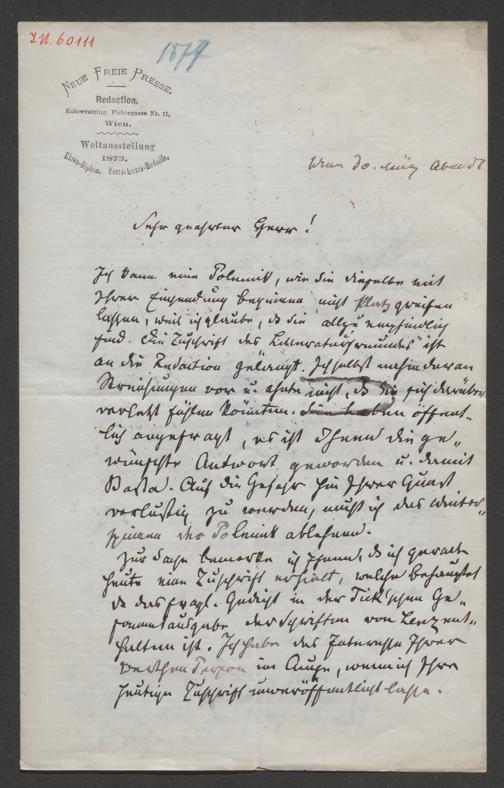 J.N. 60111
1874
NEUE FREIE PRESSE.
Redaction,
Kolowratring, Fichtegasse Nr. 11,
Wien.
Weltausstellung
1873.
Ehren-Diplom. Fortschritts-Medaille.
Wien 30. März Abends
Sehr geehrter Herr!
Ich kann eine Polemik, wie Sie dieselbe mit
Ihrer Einsendung beginnen nicht Platz greifen
lassen, weil ich glaube, dß Sie allzu empfindlich
sind. Die Zuschrift des Litteraturfreundes ist
an die Redaction gelangt. Ich selbst nahm daran
Streichungen vor u. ahnte nicht, dß Sie sich darüber
verletzt fühlen könnten. Sie haben öffent-
lich angefragt, es ist Ihnen die ge-
wünschte Antwort geworden u. damit
Basta. Auf die Gefahr hin Ihrer Gunst
verlustig zu werden, muß ich das Weiter-
spinnen der Polemik ablehnen.
Zur Sache bemerke ich Ihnen, dß ich gerade
heute eine Zuschrift erhielt, welche behauptet
dß das fragl. Gedicht in der Tiek'schen Ge-
sammtausgabe der Schriften von Lenz ent-
halten ist. Ich habe das Interesse Ihrer
werthen Person im Auge, wenn ich Ihre
heutige Zuschrift unveröffentlicht lasse.